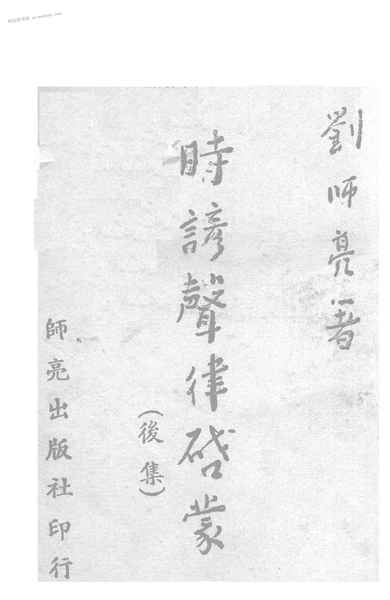 劉師亮著
時諺聲律啓蒙
(後集)
師亮出版社印行